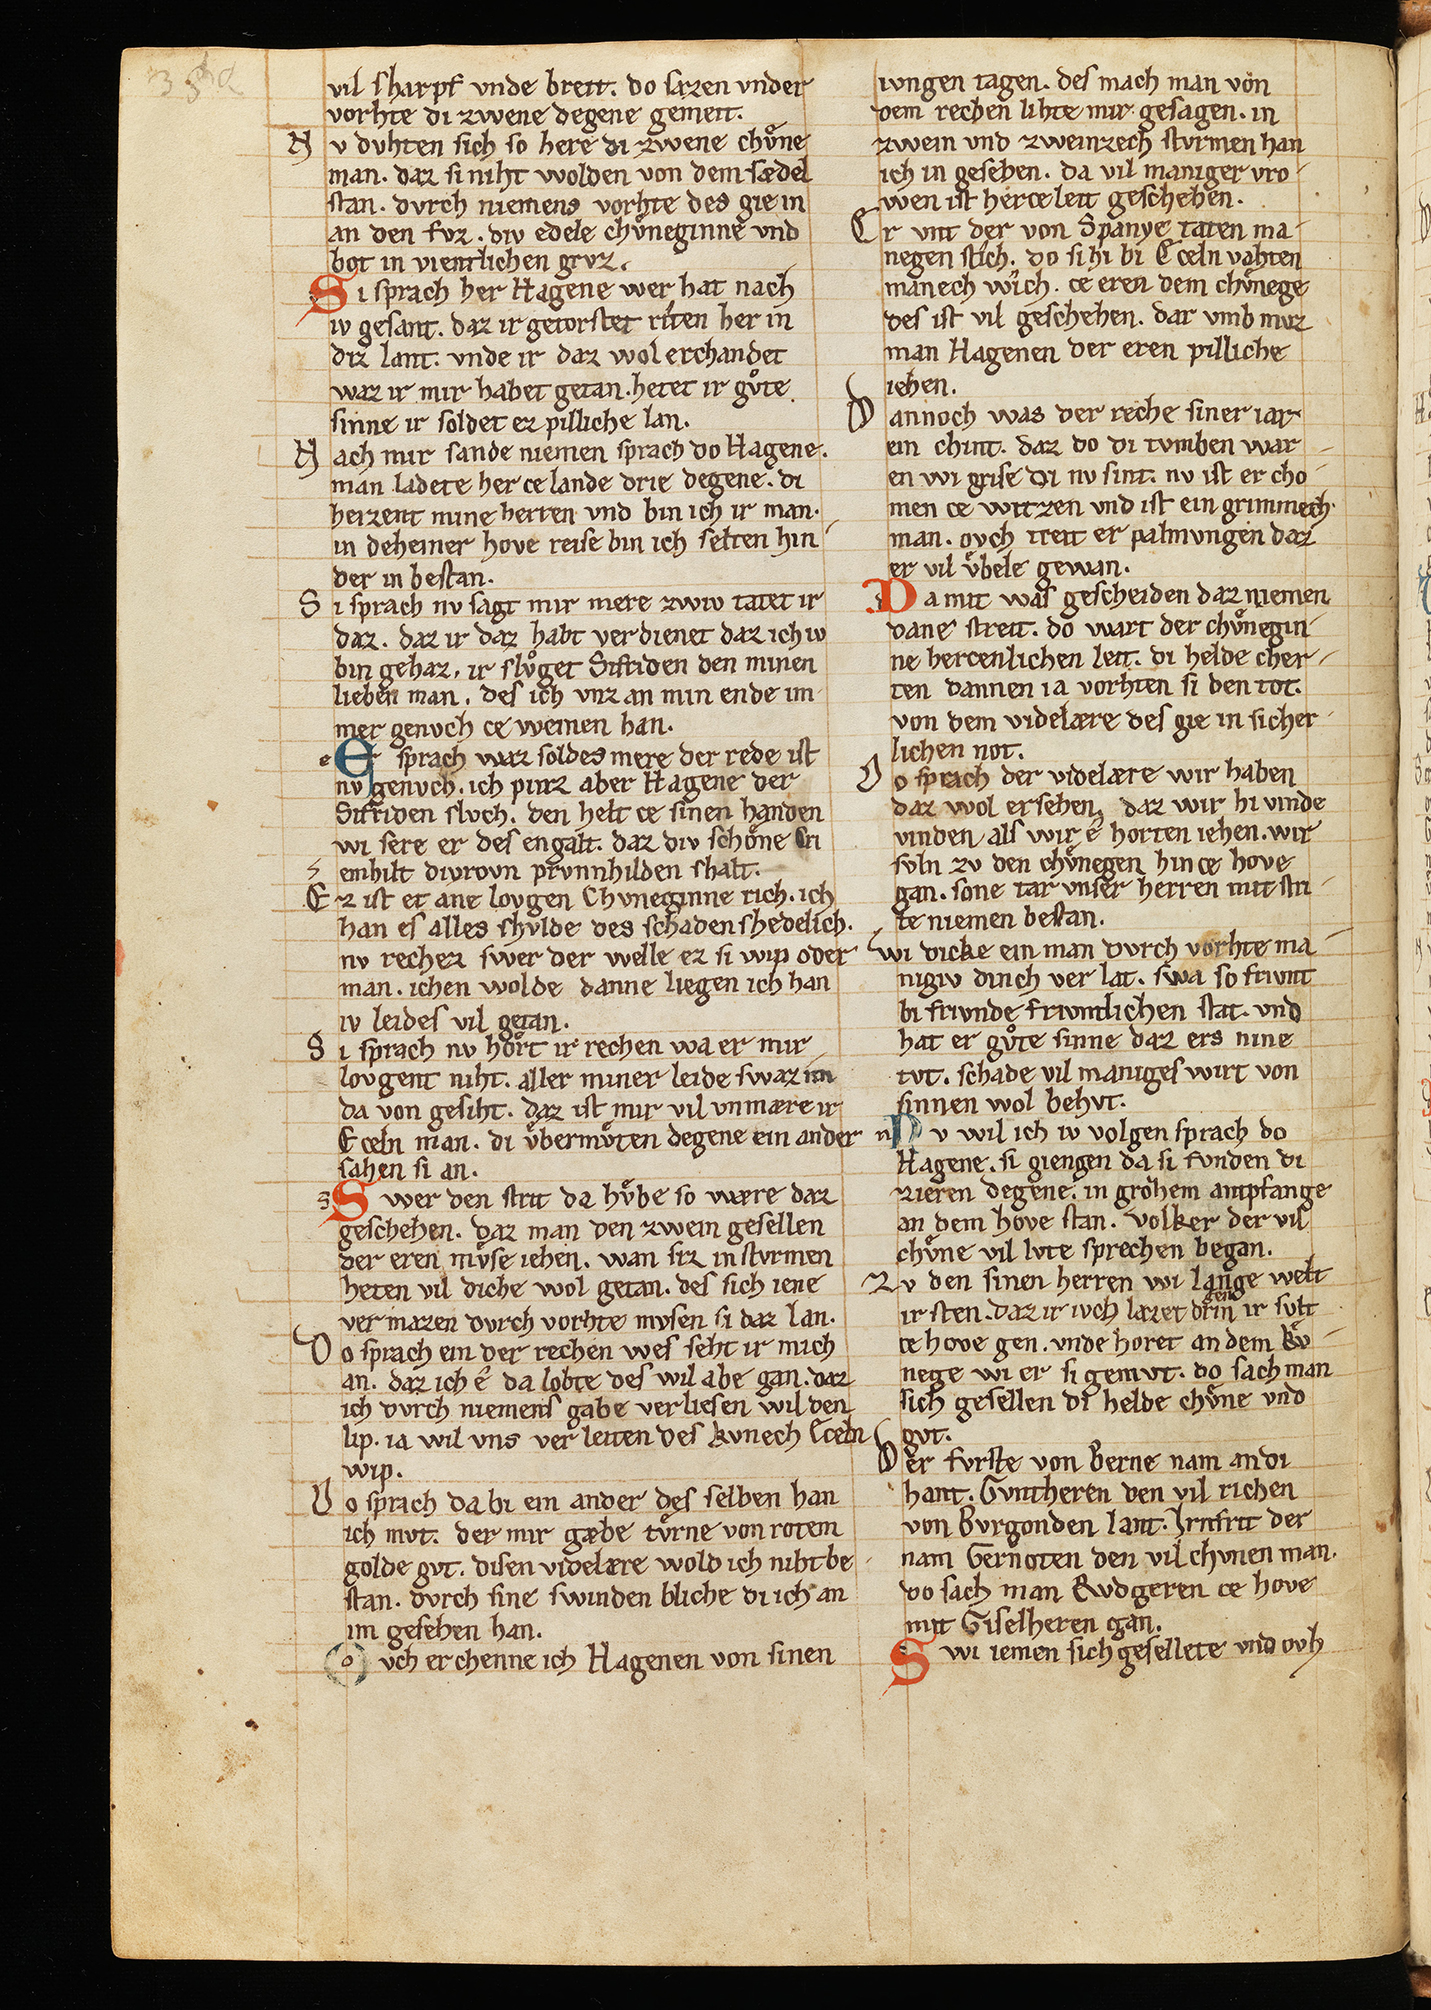 vil sharpf vnde breit. do sazen vnder
vorhte di zwene degene gemeit.
N v duhten sich so here di zwene chuͦne
man. daz si niht wolden von dem sædel
stan. dvrch niemens vorhte des gie in
an den fvz. div edele chuͦneginne vnd
bot in vientlichen grvz.
S i sprach her Hagene wer hat nach
iv gesant. daz ir getorstet riten her in
diz lant. vnde ir daz wol erchandet
waz ir mir habet getan. hetet ir guͦte
sinne ir soldet ez pilliche lan.
N ach mir sande niemen sprach do Hagene.
man ladete her ce lande drie degene. di
heizent mine herren vnd bin ich ir man.
in deheiner hove reise bin ich selten hin
der in bestan.
S i sprach nv sagt mir mere zwiv tatet ir
daz. daz ir daz habt verdienet daz ich iv
bin gehaz. ir sluͦget Sifriden den minen
lieben man. des ich vnz an min ende im
mer genvch ce weinen han.
E r sprach waz soldes mere der rede ist
nv genvch. ich pinz aber Hagene der
Sifriden slvch. den helt ce sinen handen
wi sere er des engalt. daz div schone cri
emhilt divrovn prvnnhilden shalt.
E z ist et ane lovgen Chvneginne rich. ich
han es alles shvlde des schaden shedelich.
nv rechez swer der welle ez si wip oder
man. ichen wolde danne liegen ich han
iv leides vil getan.
S i sprach nv hort ir rechen wa er mir
lovgent niht. aller miner leide swaz im
da von gesiht. daz ist mir vil vnmære ir
Eceln man. di vͤbermvͦten degene ein ander
sahen si an.
S wer den strit da hvͤbe so wære daz
geschehen. daz man den zwein gesellen
der eren mvͤse iehen. wan siz in stvrmen
heten vil diche wol getan. des sich iene
vermazen dvrch vorhte mvsen si daz lan.
D o sprach ein der rechen wes seht ir mich
an. daz ich e da lobte des wil abe gan. daz
ich dvrch niemens gabe verliesen wil den
lip. ia wil vns verleiten des kvnech Eceln
wip.
D o sprach da bi ein ander des selben han
ich mvt. der mir gæbe tvͤrne von rotem
golde gvt. disen videlære wold ich niht be
stan. dvrch sine swinden bliche di ich an
im gesehen han.
O vch erchenne ich Hagenen von sinen
ivngen tagen. des mach man von
dem rechen lihte mir gesagen. in
zwein vnd zweinzech stvrmen han
ich in gesehen. da vil maniger vro
wen ist herceleit geschehen.
E r vnt der von Spanye taten ma
negen stich. do si hi bi Eceln vahten
manech wich. ce eren dem chuͤnege
des ist vil geschehen. dar vmb mvz
man Hagenen der eren pilliche
iehen.
D annoch was der reche siner iar
ein chint. daz do di tvmben war
en wi grise di nv sint. nv ist er cho
men ce witzen vnd ist ein grimmech
man. ovch treit er palmvngen daz
er vil vͤbele gewan.
D a mit was gescheiden daz niemen
dane streit. do wart der chuͤnegin
ne hercenlichen leit. di helde cher
ten dannen ia vorhten si den tot.
von dem videlære des gie in sicher
lichen not.
D o sprach der videlære wir haben
daz wol ersehen. daz wir hi vinde
vinden als wir e horten iehen. wir
svln zv den chuͤnegen hin ce hove
gan. sone tar vnser herren mit stri
te niemen bestan.
Wi dicke ein man dvrch vorhte ma
nigiv dinch ver lat. swa so frivnt
bi frivnde frivntlichen stat. vnd
hat er guͦte sinne daz ers nine
tvt. schade vil maniges wirt von
sinnen wol behvt.
N v wil ich iv volgen sprach do
Hagene. si giengen da si fvnden di
zieren degene. in grohem antpfange
an dem hove stan. Volker der vil
chuͤne vil lvte sprechen began.
Z v den sinen herren wi lange welt
ir sten. daz ir ivch lazet dringen ir svlt
ce hove gen. vnde horet an dem kv
nege wi er si gemvt. do sach man
sich gesellen di helde chuͤne vnd
gvt.
D er fvrste von Berne nam an di
hant. Gvntheren den vil richen
von Bvrgonden lant. Irnfrit der
nam Gernoten den vil chvnen man.
do sach man Rvdgeren ce hove
mit Giselheren gan.
S wi iemen sich gesellete vnd ovh